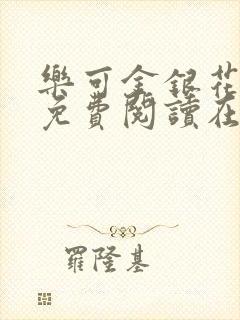 樂可金銀花
免費閱讀在
羅隆基